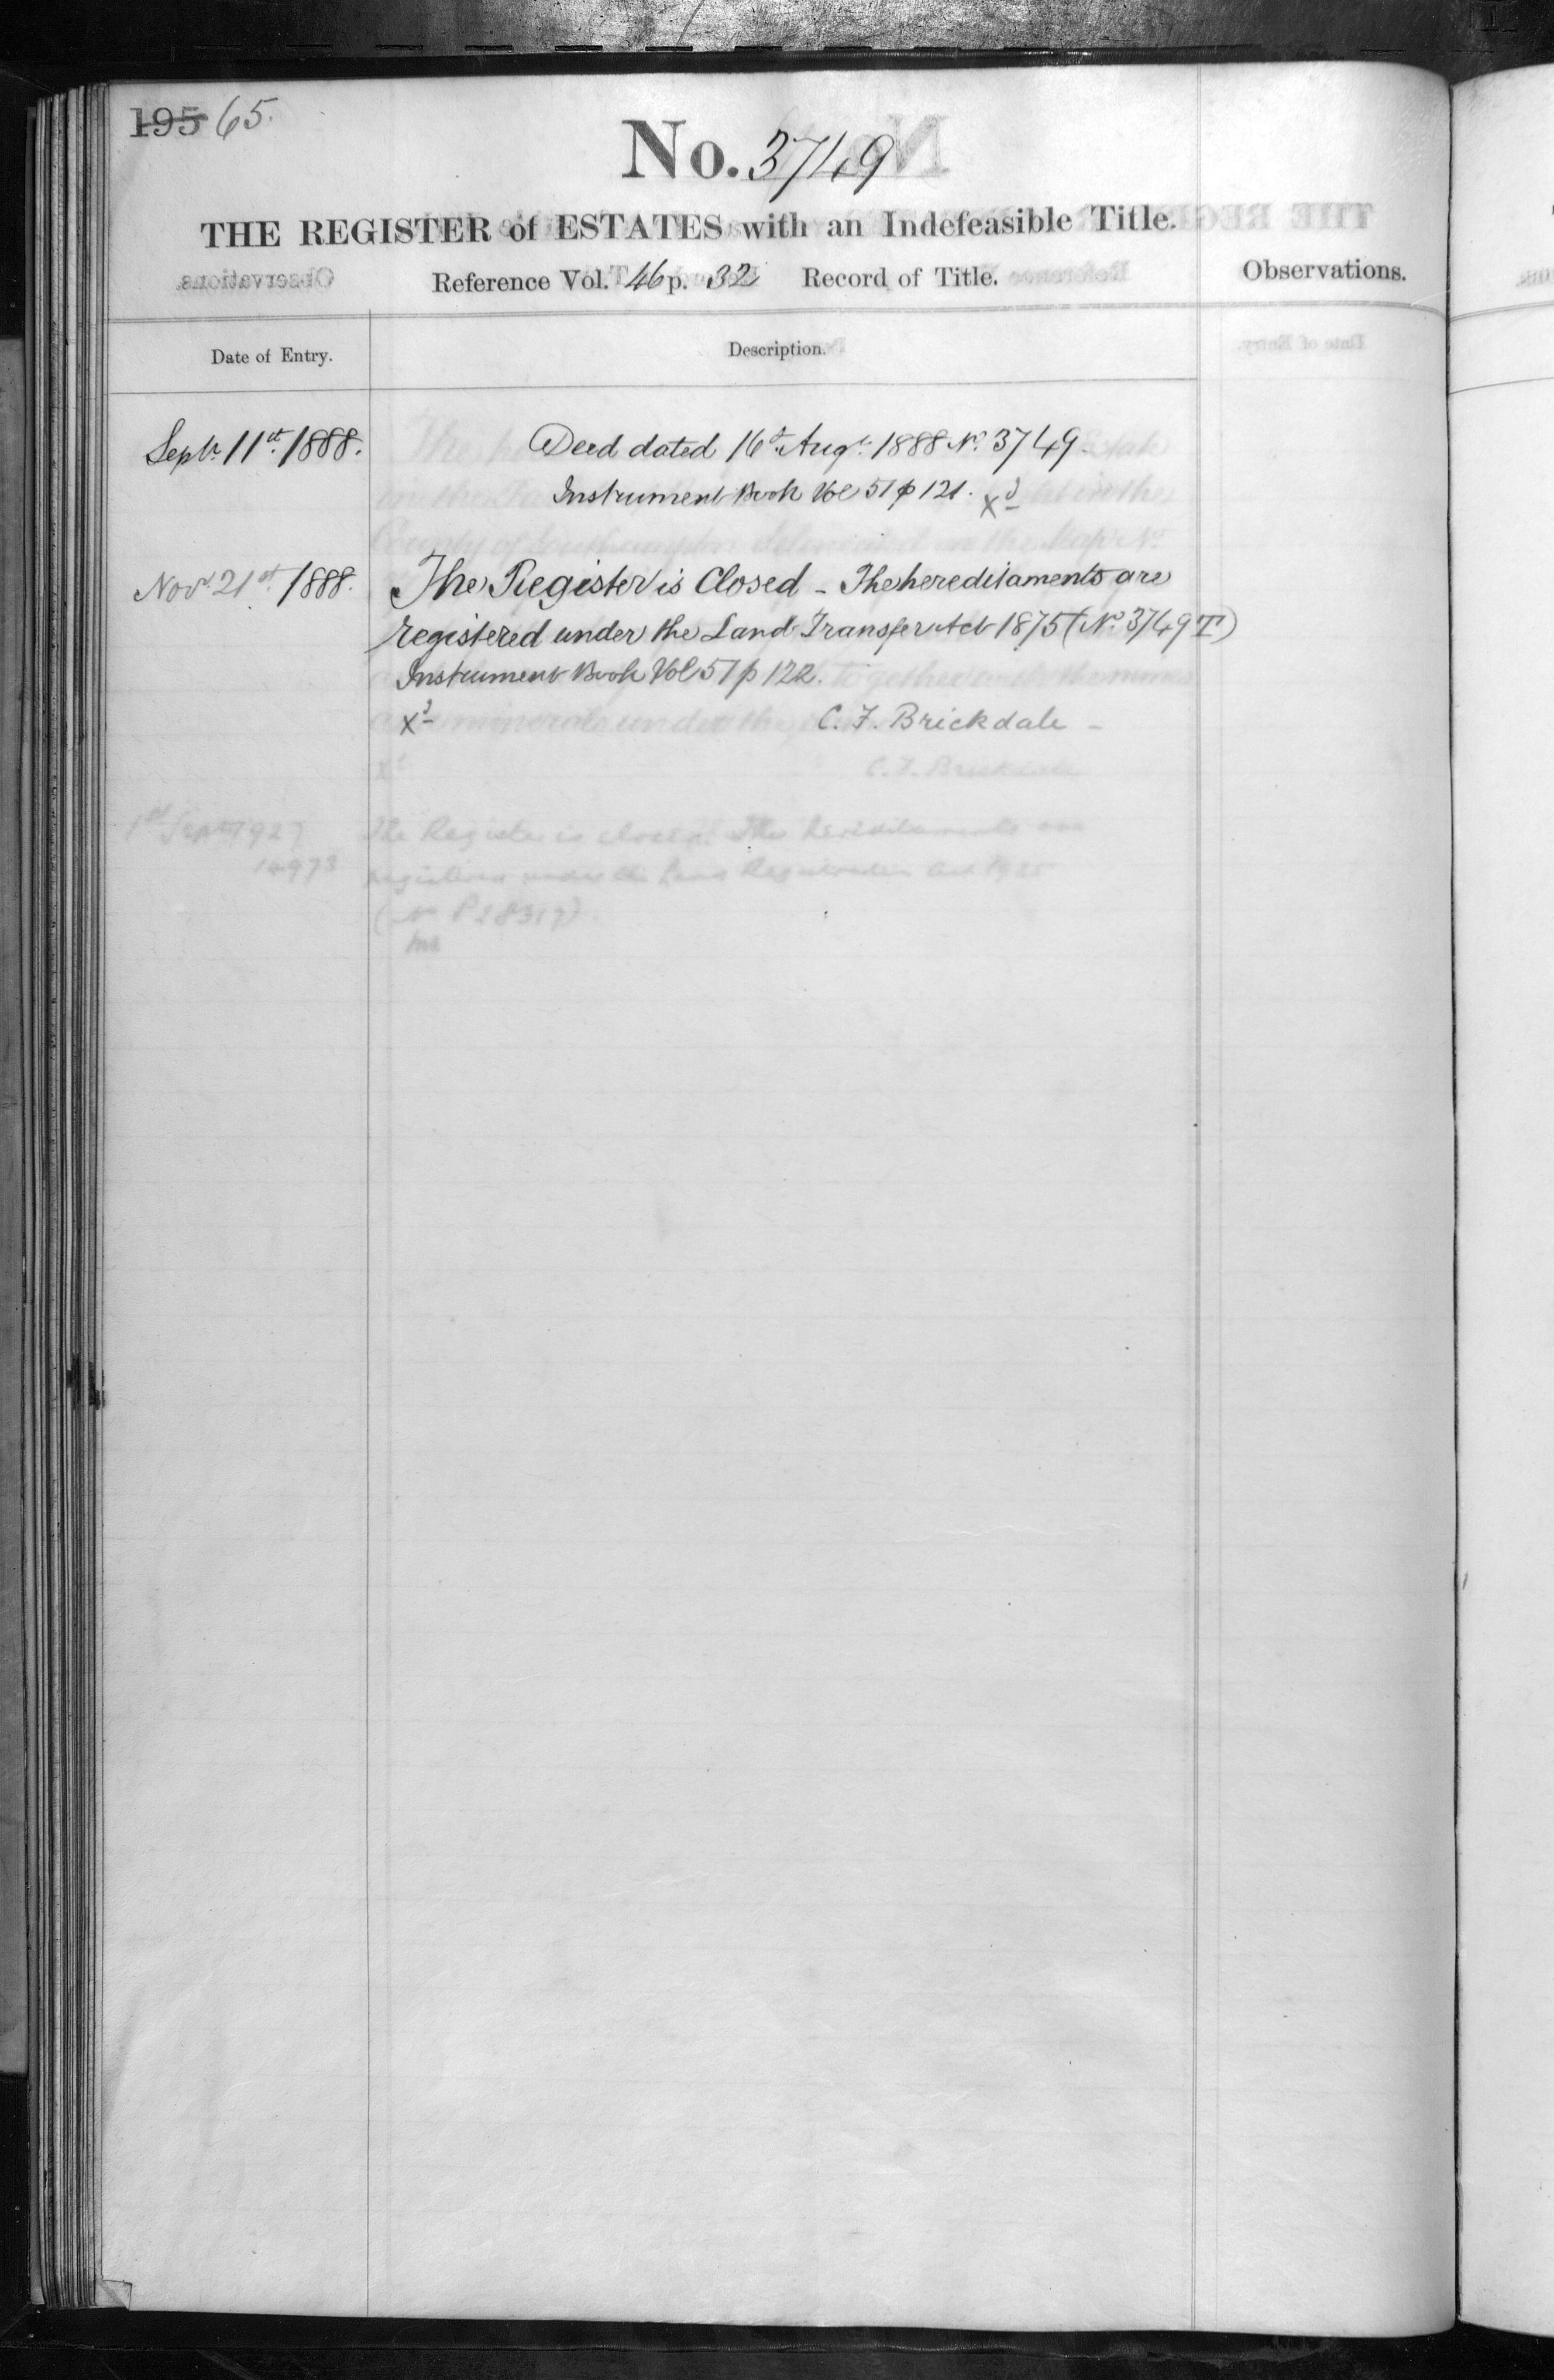 195 65.
No. 3749
THE REGISTER of ESTATES with an Indefeasible Title.
Reference Vol. 46 p. 32 Record of Title.
Observations.
Date of Entry.
Description.
Septr. 11th. 1888.
Deed dated 16th Augt. 1888 No. 3749.
Instrument Book Vol 51 p 121.
Novr. 21st. 1888.
The Register is Closed - The hereditaments are
registered under the Land Transfer Act 1875 (No. 3749 T)
Instrument Book Vol 51 p 122.
C. F. Brickdale -
C. F. Brickdale
The Register is closed. The hereditaments are
registered under the Land Registration Act 1925